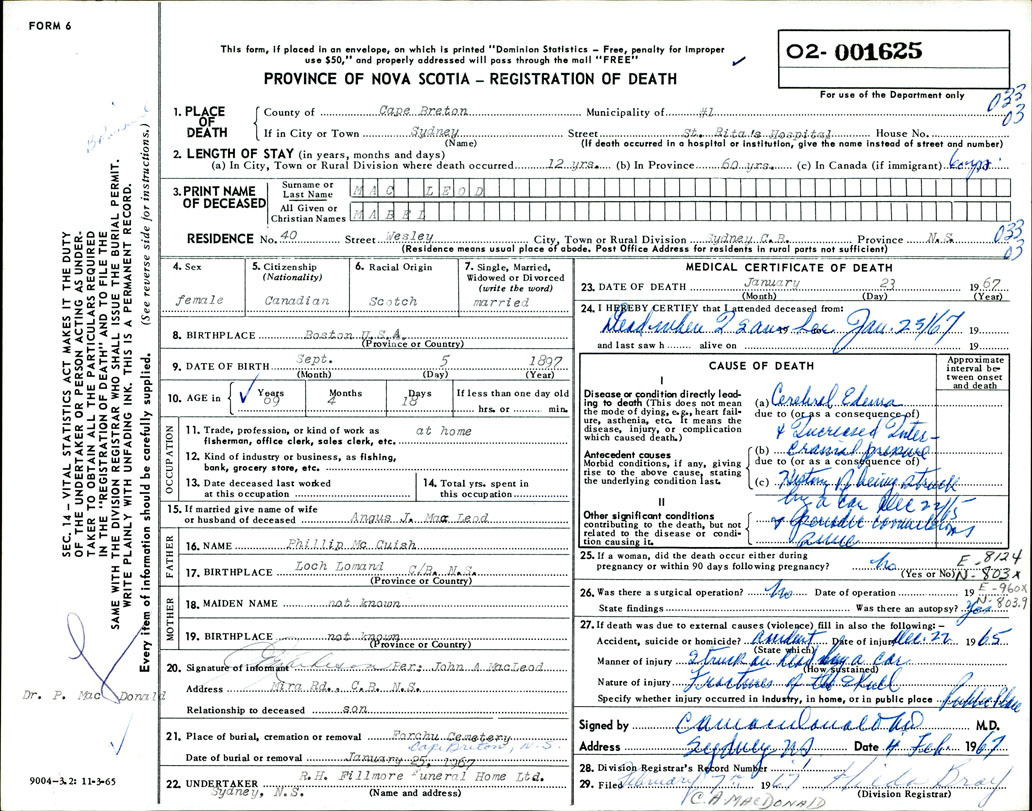 FORM 6
This form, if placed in an envelope, on which is printed "Dominion Statistics – Free, penalty for improper
use $50," and properly addressed will pass through the mail "FREE"
PROVINCE OF NOVA SCOTIA – REGISTRATION OF DEATH
02- 001625
For use of the Department only
033
03
1. PLACE OF DEATH
County of Cape Breton Municipality of #1
If in City or Town Sydney Street St. Rita's Hospital House No.
(Name) (If death occurred in a hospital or institution, give the name instead of street and number)
2. LENGTH OF STAY (in years, months and days)
(a) In City, Town or Rural Division where death occurred 12 yrs. (b) In Province 60 yrs. (c) In Canada (if immigrant) 60 yrs
3. PRINT NAME OF DECEASED
Surname or Last Name MAC LEOD
All Given or Christian Names MABEL
RESIDENCE No. 40 Street Wesley City, Town or Rural Division Sydney C.B. Province N.S.
(Residence means usual place of abode. Post Office Address for residents in rural parts not sufficient)
033
03
4. Sex
female
5. Citizenship
(Nationality)
Canadian
6. Racial Origin
Scotch
7. Single, Married,
Widowed or Divorced
(write the word)
married
8. BIRTHPLACE Boston U.S.A.
(Province or Country)
9. DATE OF BIRTH Sept. 5 1897
(Month) (Day) (Year)
10. AGE in Years Months Days If less than one day old
69 4 18 hrs. or min.
OCCUPATION
11. Trade, profession, or kind of work as at home
fisherman, office clerk, sales clerk, etc.
12. Kind of industry or business, as fishing,
bank, grocery store, etc.
13. Date deceased last worked
at this occupation
14. Total yrs. spent in
this occupation
15. If married give name of wife
or husband of deceased Angus J. Mac Leod
FATHER
16. NAME Phillip Mc Cuish
17. BIRTHPLACE Loch Lomand C/B. N.S.
(Province or Country)
MOTHER
18. MAIDEN NAME not known
19. BIRTHPLACE not known
(Province or Country)
20. Signature of informant Per; John A MacLeod
Address Mira Rd., C.B. N.S.
Relationship to deceased son
21. Place of burial, cremation or removal Forchu Cemetery
Cape Breton, N.S.
Date of burial or removal January 25, 1967
22. UNDERTAKER R.H. Fillmore Funeral Home Ltd.
Sydney, N.S. (Name and address)
MEDICAL CERTIFICATE OF DEATH
23. DATE OF DEATH January 23 1967
(Month) (Day) (Year)
24. I HEREBY CERTIFY that I attended deceased from:
Dead when I saw her Jan. 23/67 19
and last saw h alive on 19
CAUSE OF DEATH
Approximate
interval be-
tween onset
and death
I
Disease or condition directly lead-
ing to death (This does not mean
the mode of dying, e.g., heart fail-
ure, asthenia, etc. It means the
disease, injury, or complication
which caused death.)
(a) Cerebral Edema
due to (or as a consequence of)
& Increased Inter-
Antecedent causes
Morbid conditions, if any, giving
rise to the above cause, stating
the underlying condition last.
(b) cranial pressure
due to (or as a consequence of)
(c) History of being struck
by a car Dec 22/65
II
Other significant conditions
contributing to the death, but not
related to the disease or condi-
tion causing it.
& periodic convulsions
since
25. If a woman, did the death occur either during
pregnancy or within 90 days following pregnancy? No
(Yes or No)
E-8124
N-803X
26. Was there a surgical operation? No Date of operation 19
E-960X
N-803.9
State findings Was there an autopsy? Yes
27. If death was due to external causes (violence) fill in also the following:–
Accident, suicide or homicide? accident Date of injury Dec. 22 1965
(State which)
Manner of injury Struck on head by a car
(How sustained)
Nature of injury Fractures of the skull
Specify whether injury occurred in industry, in home, or in public place Public Place
Signed by C A MacDonald M.D.
Address Sydney NS Date 4 Feb. 1967
28. Division Registrar's Record Number
29. Filed February 7th 1967 Hilda Bray
(Division Registrar)
C. A MACDONALD
SEC. 14 – VITAL STATISTICS ACT MAKES IT THE DUTY
OF THE UNDERTAKER OR PERSON ACTING AS UNDER-
TAKER TO OBTAIN ALL THE PARTICULARS REQUIRED
IN THE "REGISTRATION OF DEATH" AND TO FILE THE
SAME WITH THE DIVISION REGISTRAR WHO SHALL ISSUE THE BURIAL PERMIT.
WRITE PLAINLY WITH UNFADING INK. THIS IS A PERMANENT RECORD.
Every item of information should be carefully supplied. (See reverse side for instructions.)
Dr. P. Mac Donald
9004-3.2: 11-3-65